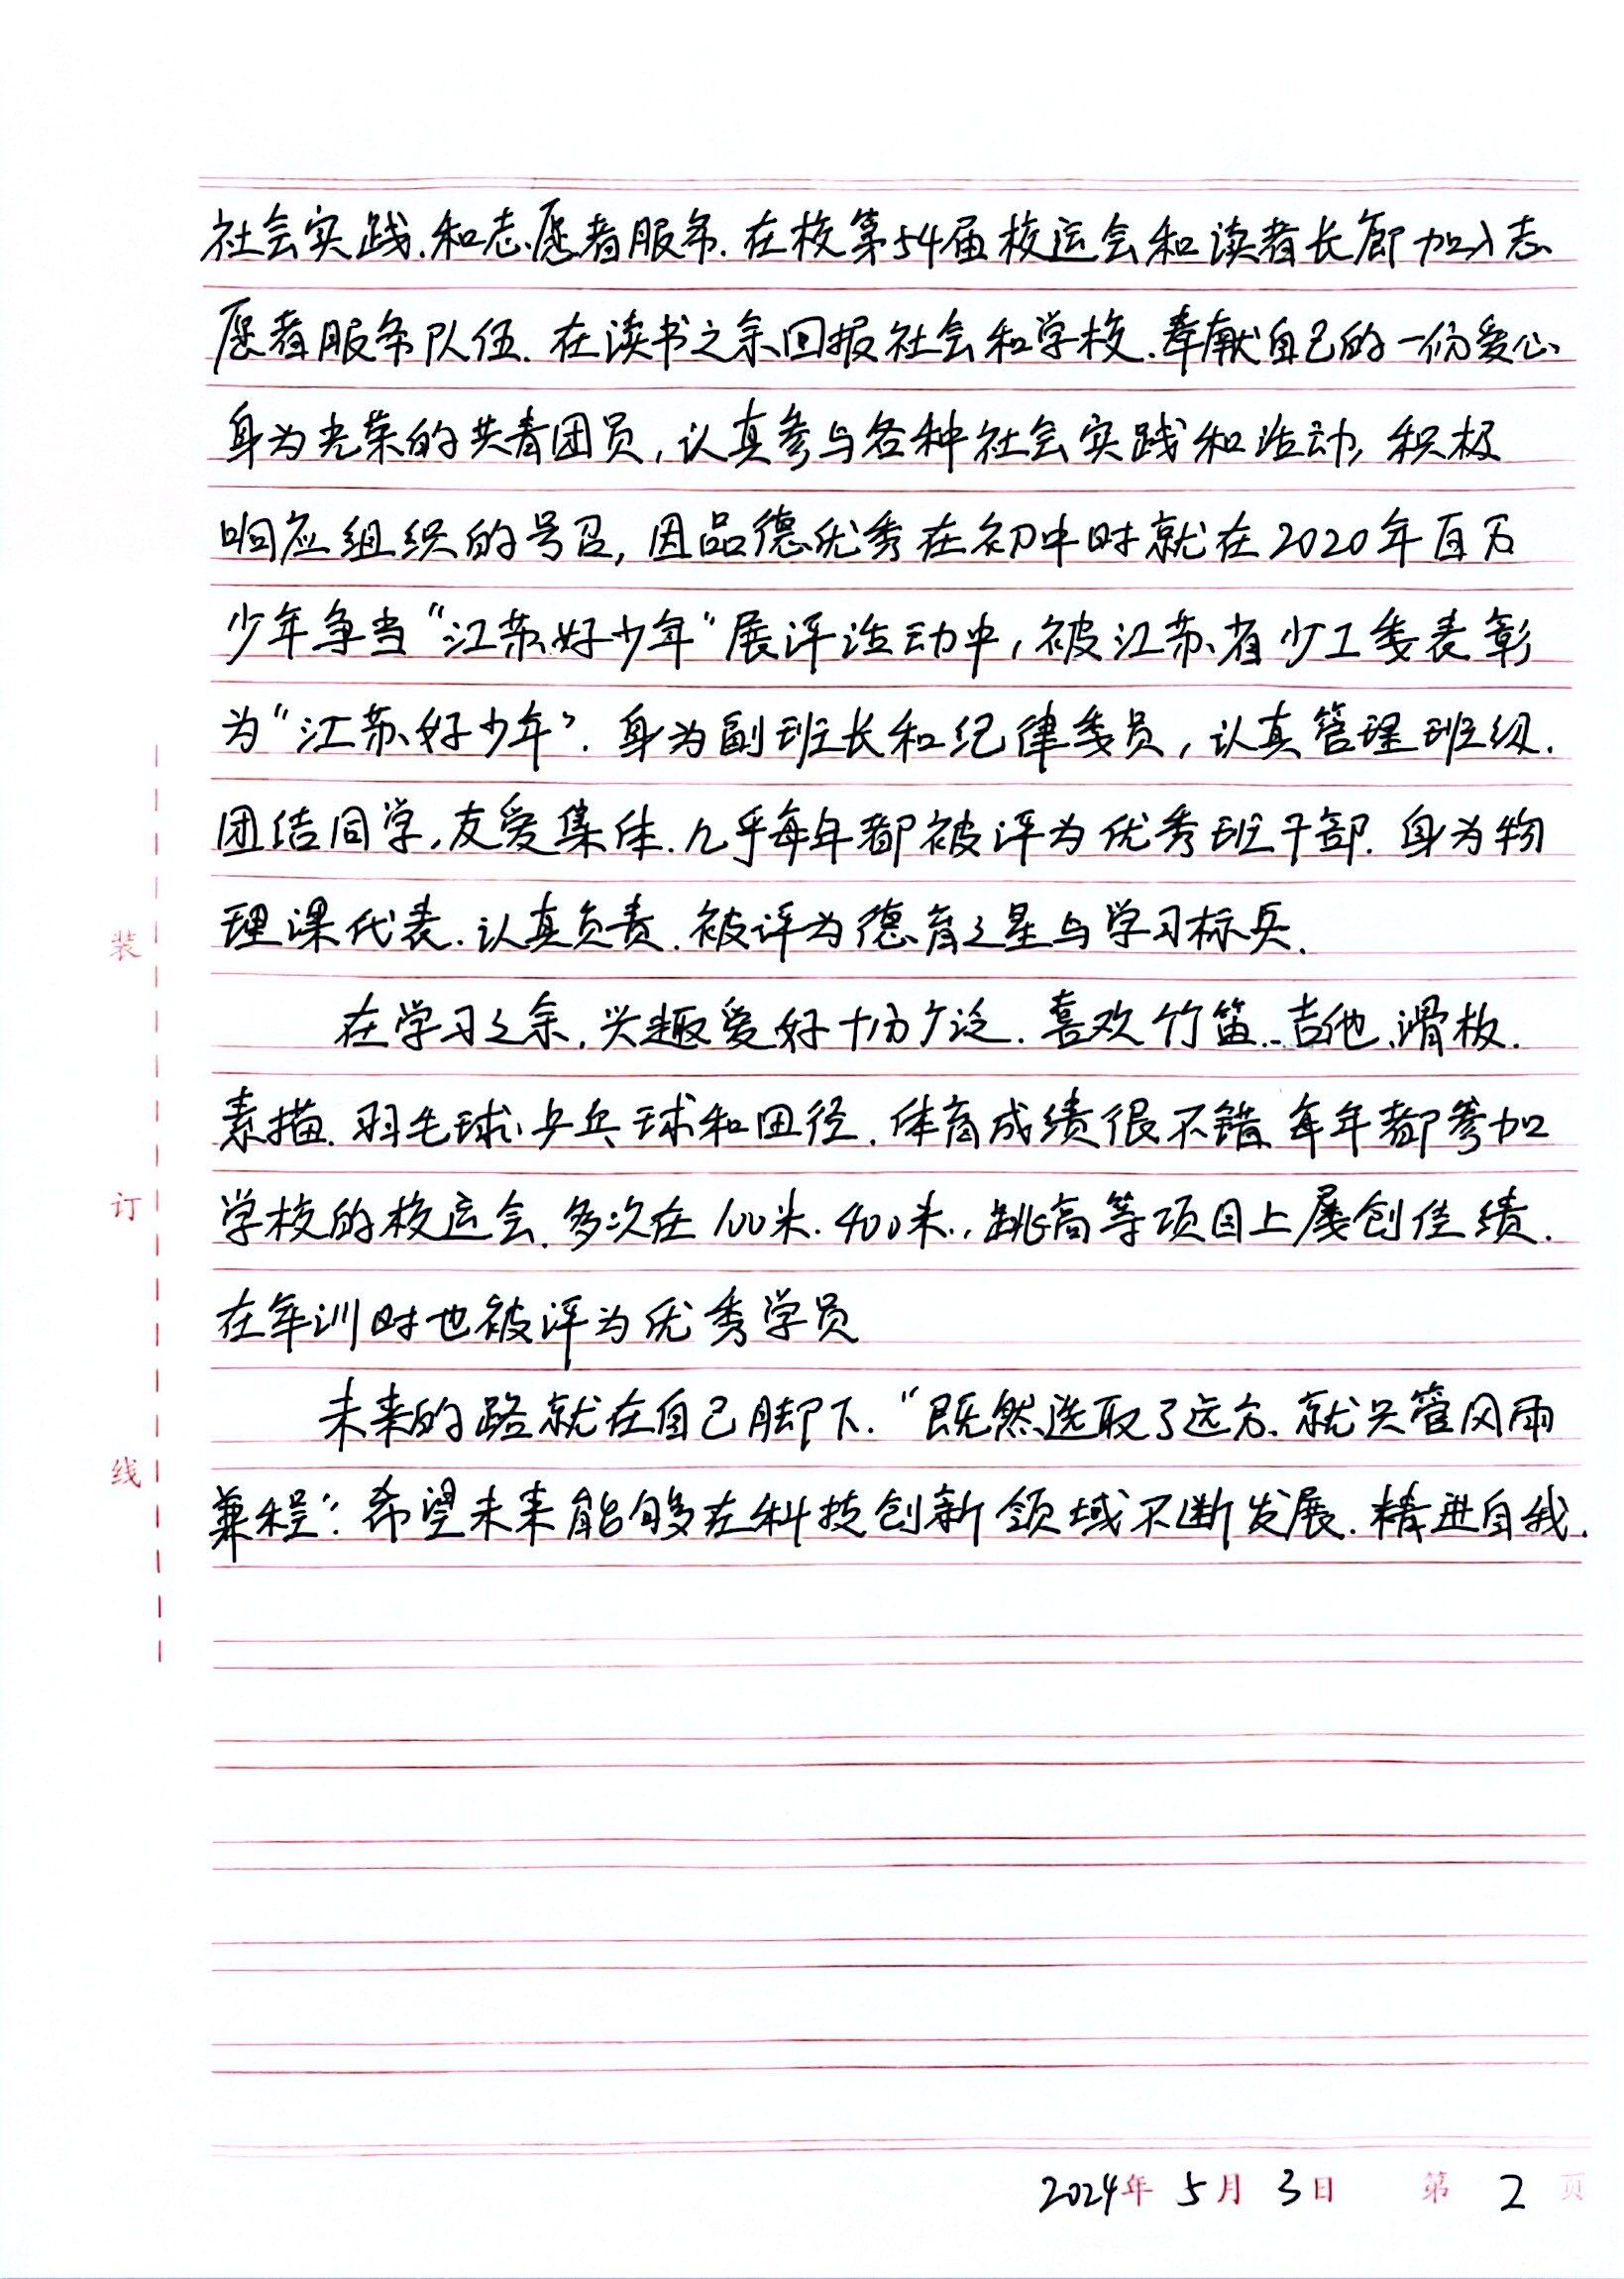 社会实践、和志愿者服务.在校第54届校运会和读者长廊加入志
愿者服务队伍.在读书之余回报社会和学校.奉献自己的一份爱心、
身为光荣的共青团员,认真参与各种社会实践和活动,积极
响应组织的号召,因品德优秀在初中时就在2020年百万
少年争当“江苏好少年”展评活动中,被江苏省少工委表彰
为“江苏好少年”.身为副班长和纪律委员,认真管理班级.
团结同学,友爱集体.几乎每年都被评为优秀班干部.身为物
理课代表.认真负责.被评为德育之星与学习标兵.
在学习之余,兴趣爱好十分广泛.喜欢竹笛、吉他、滑板.
素描.羽毛球、乒乓球和田径.体育成绩很不错、每年都参加
学校的校运会.多次在100米.400米.,跳高等项目上屡创佳绩.
在军训时也被评为优秀学员
未来的路就在自己脚下.“既然选取了远方.就只管风雨
兼程”.希望未来能够在科技创新领域不断发展.精进自我.
装
订
线
2024年 5月 3日 第 2 页